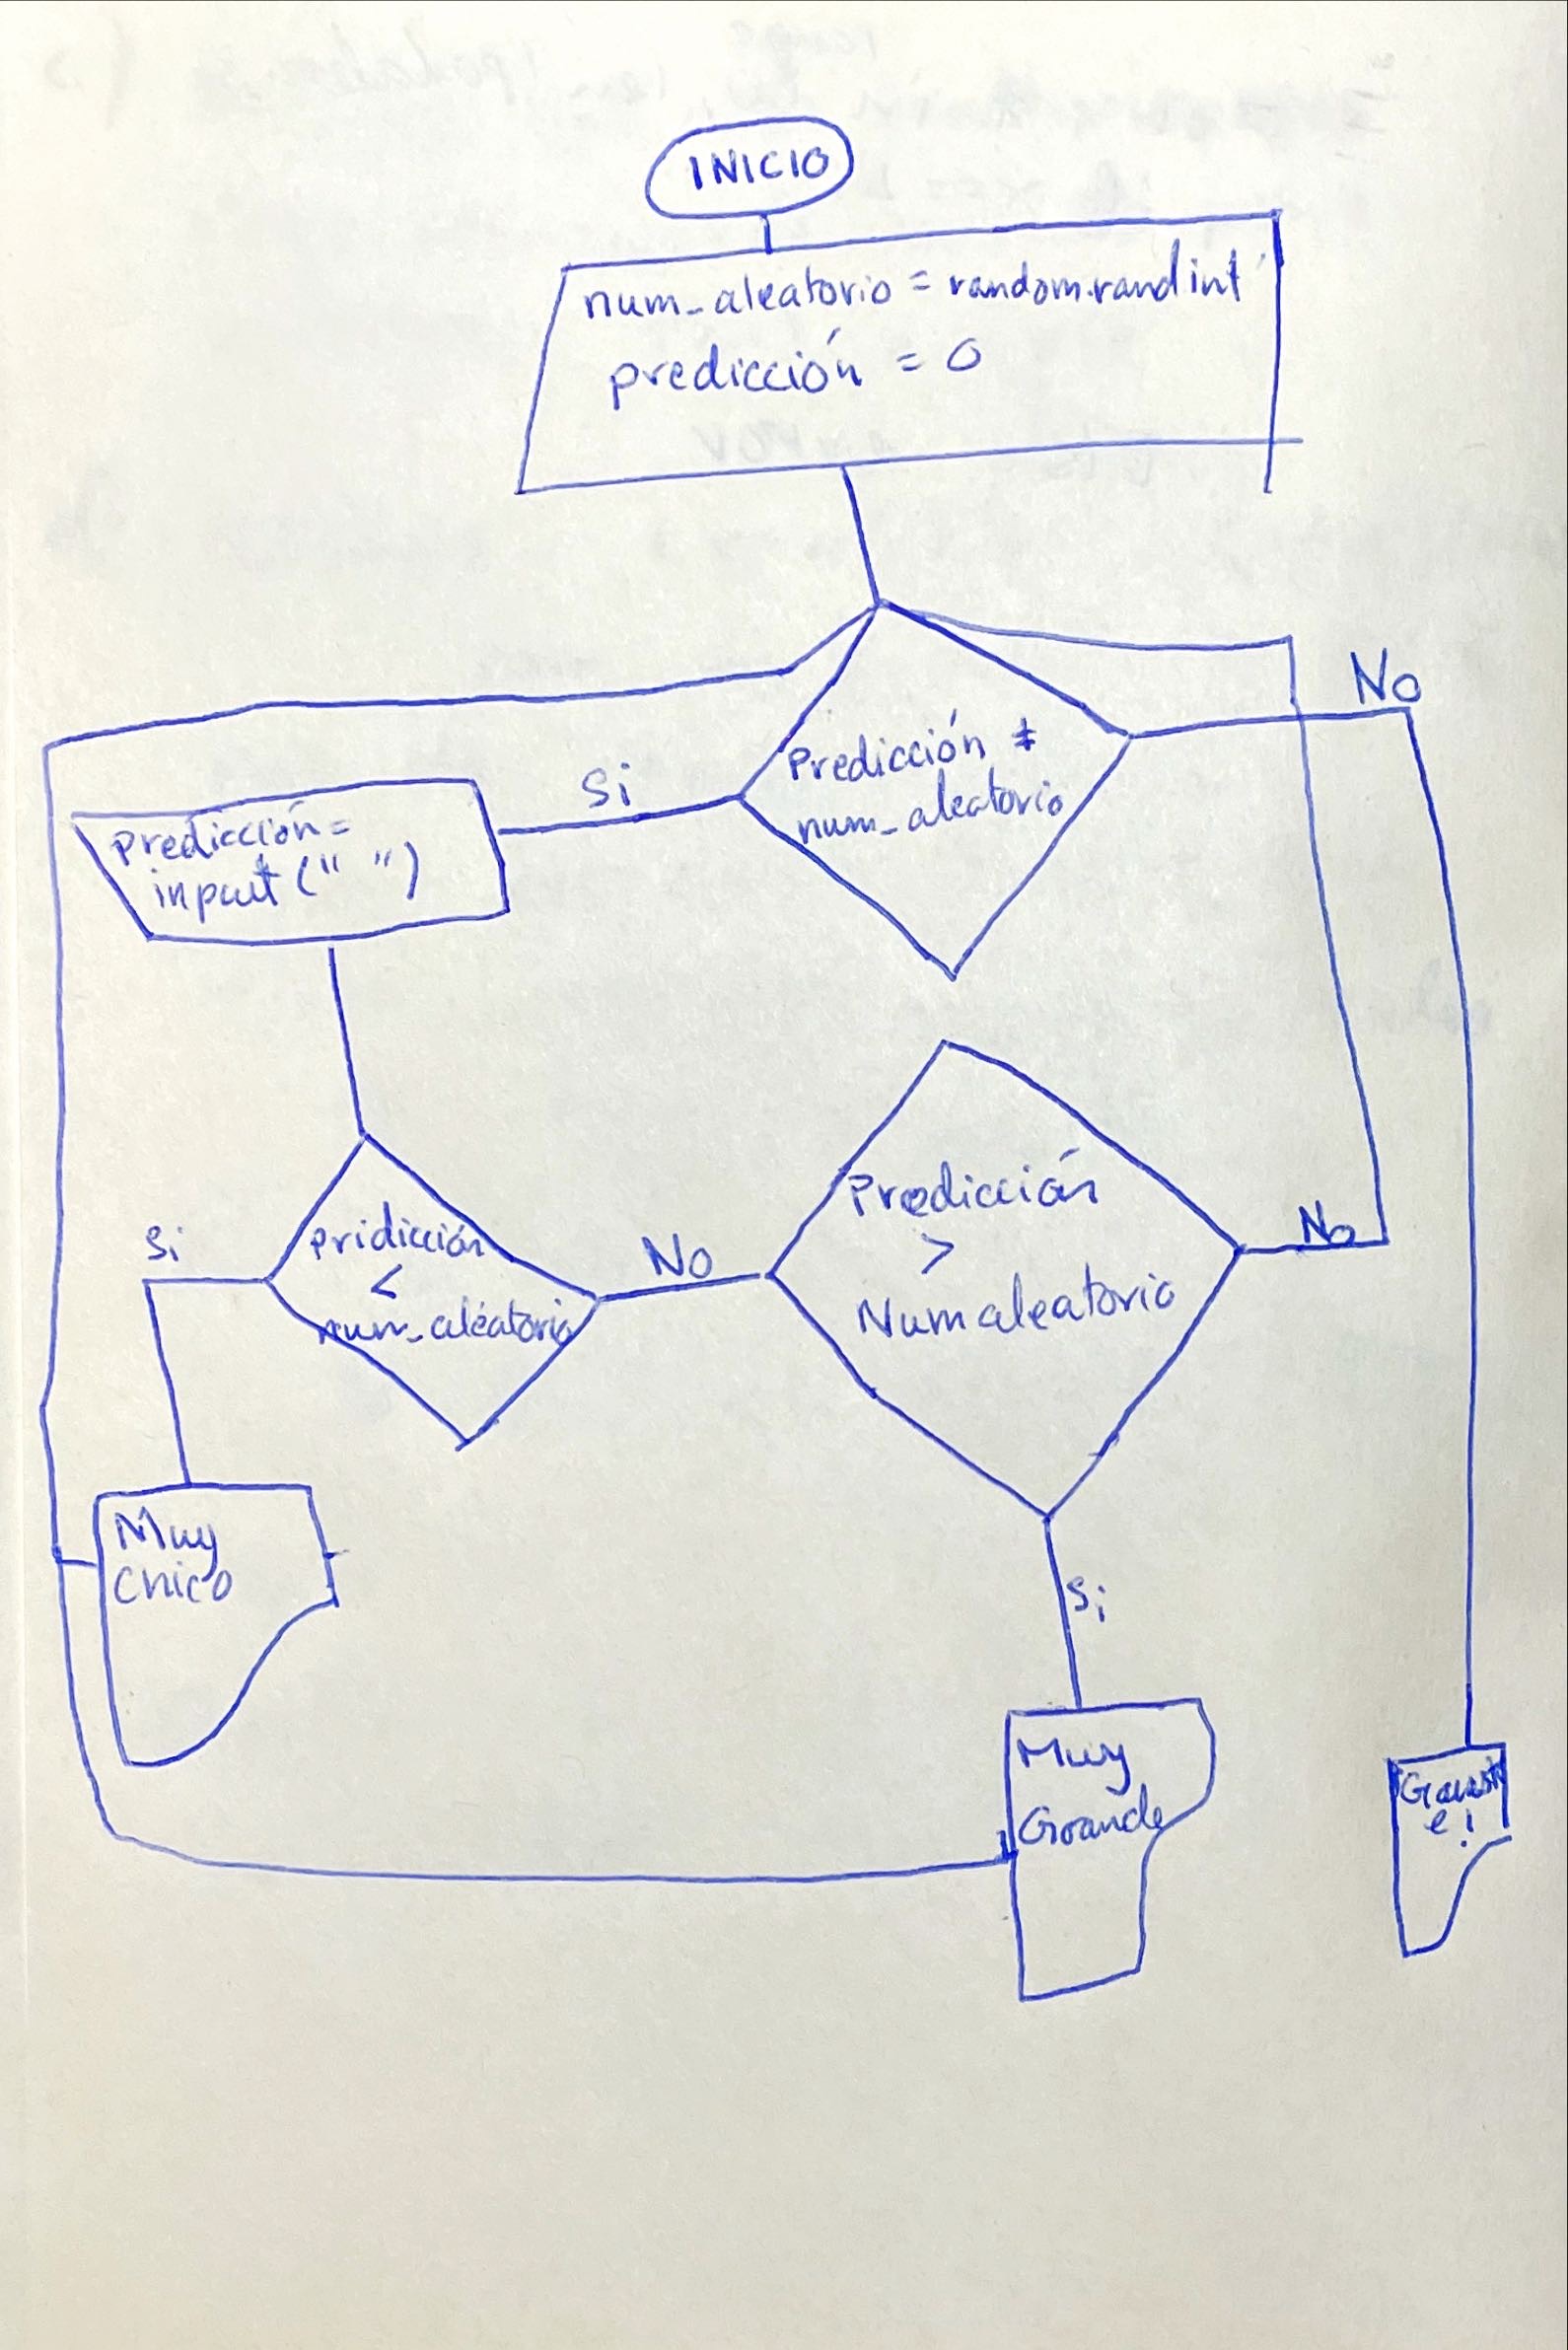 INICIO
num_aleatorio = random.randint
predicción = 0
No
Predicción ≠
num_aleatorio
Si
Predicción =
input (" ")
Predicción
>
Numaleatorio
No
Si
pridicción
<
num_aleatorio
No
Muy
Chico
Si
Muy
Grande
Ganast
e!